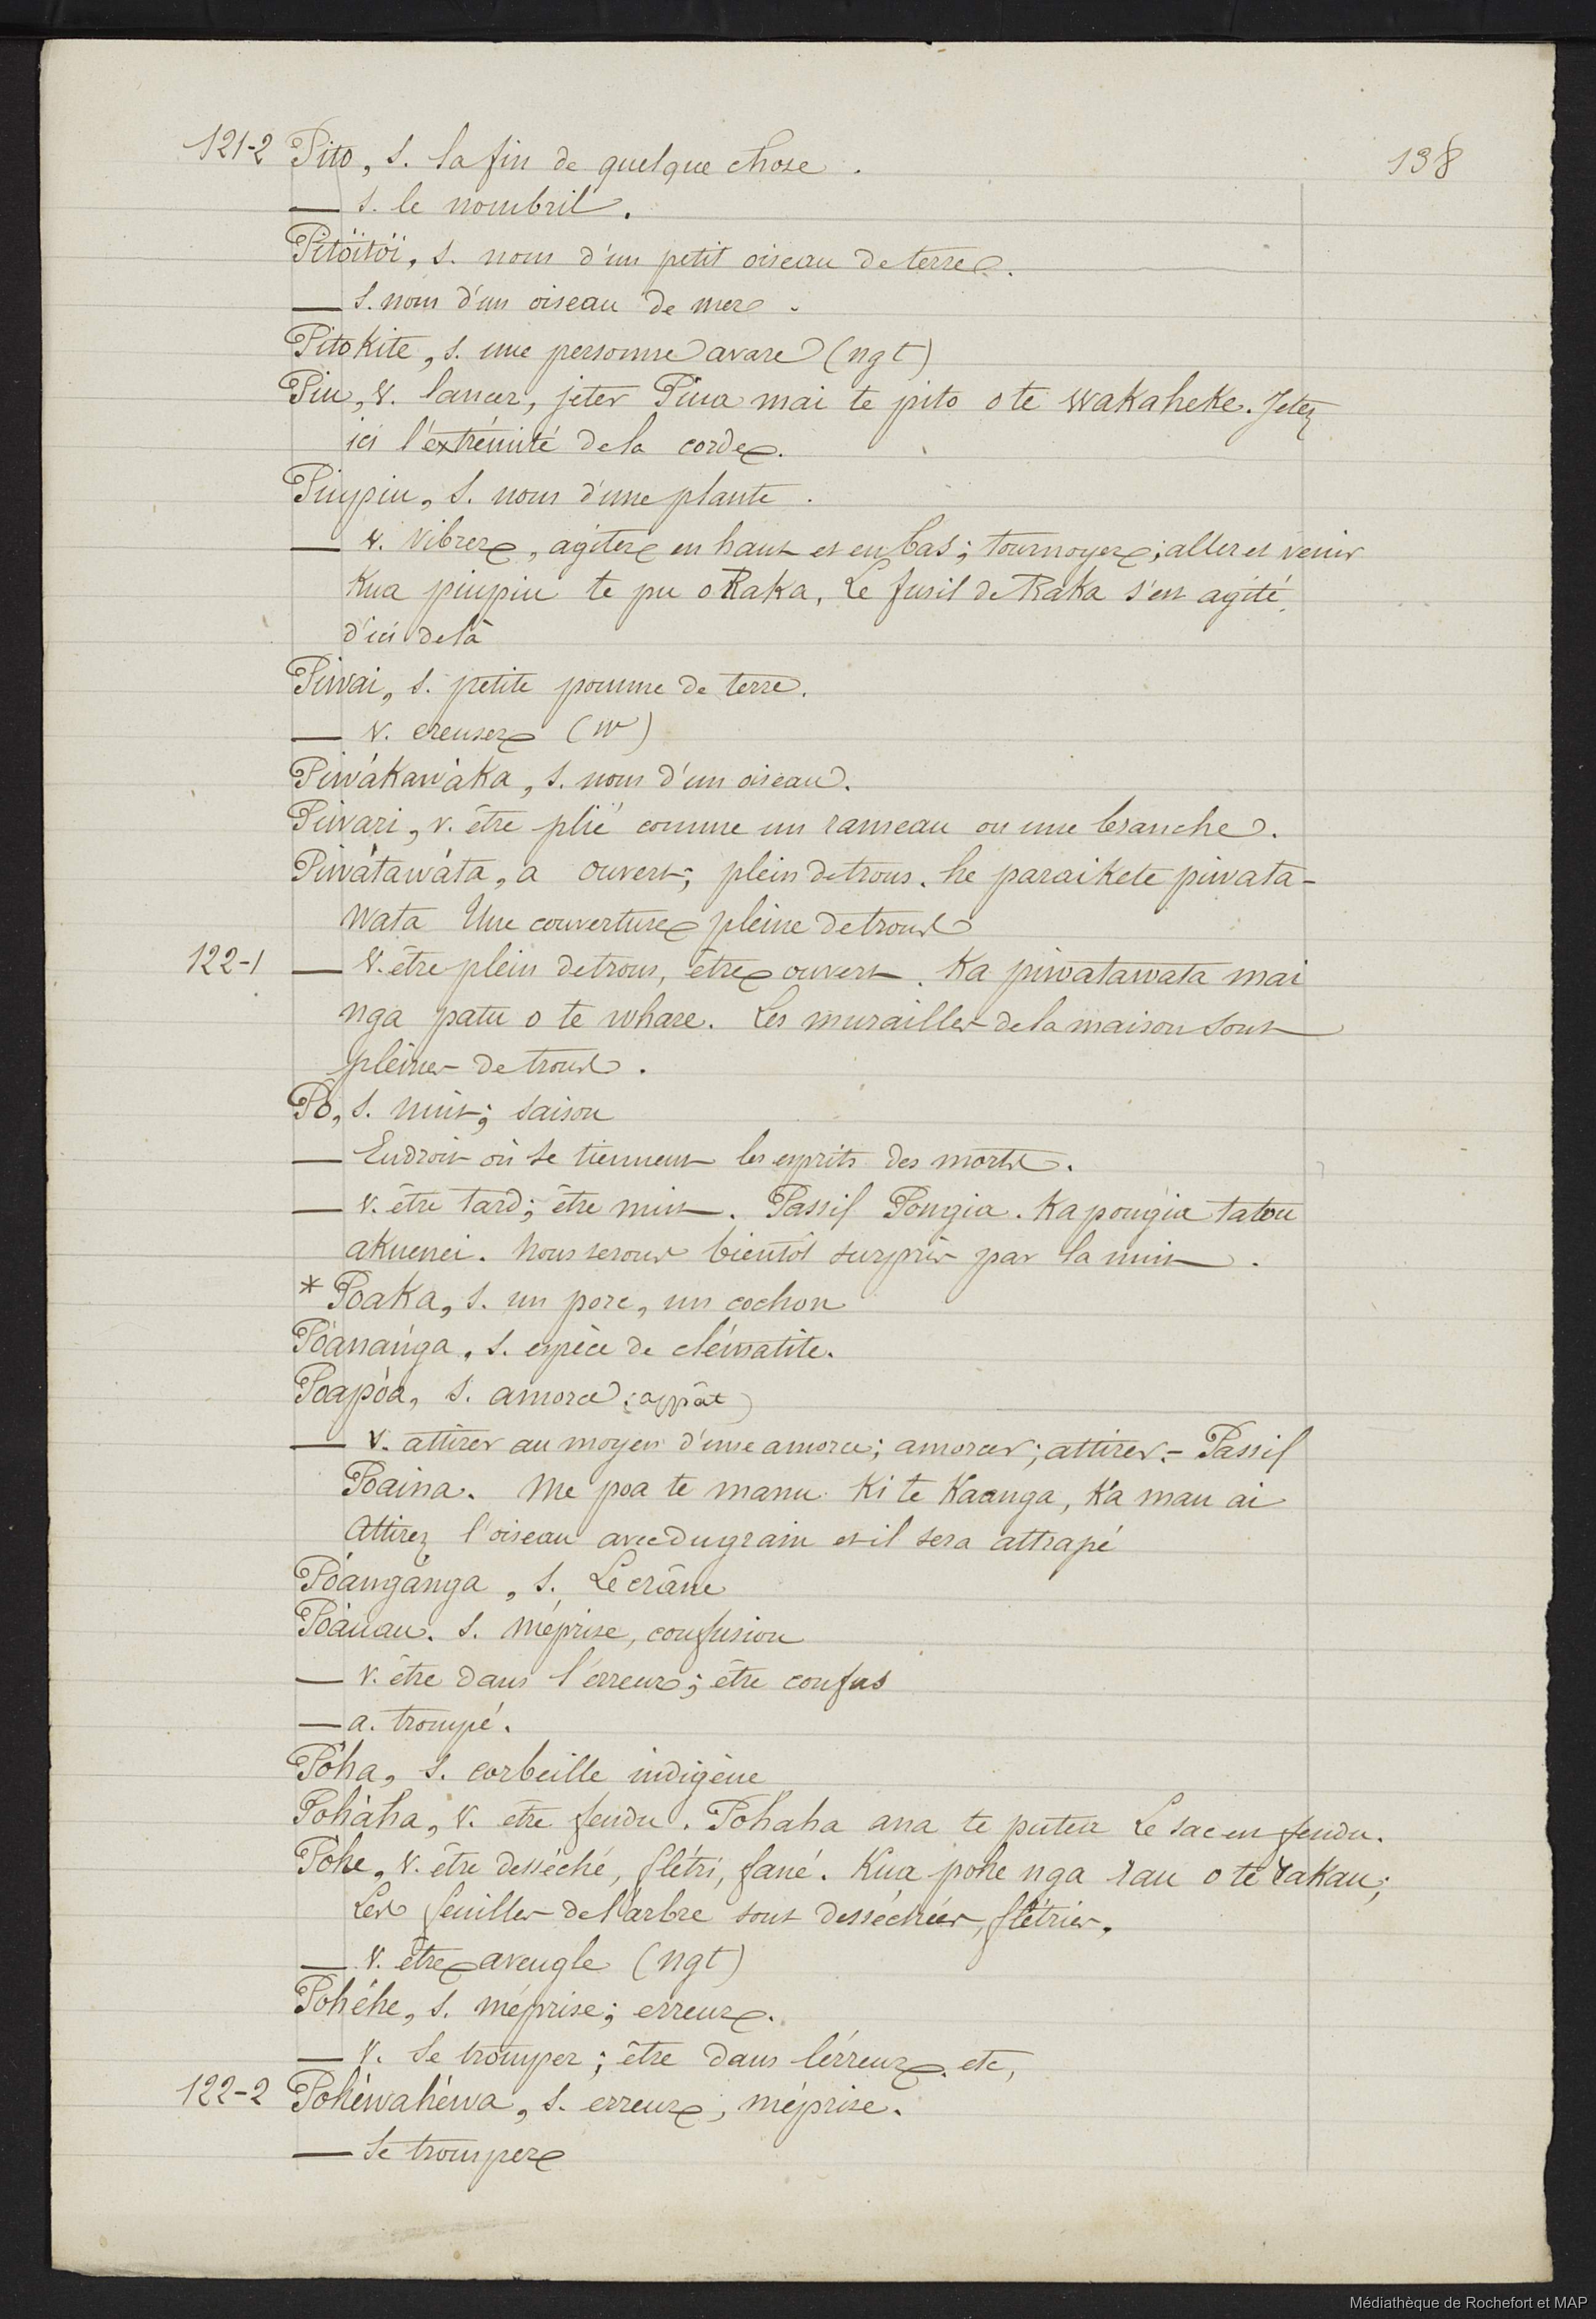 121-2 Pito, s. la fin de quelque chose.
138
— s. le nombril.
Pitöitöi, s. nom d'un petit oiseau de terre.
— s. nom d'un oiseau de mer.
Pitokite, s. une personne avare (ngt)
Piu, v. lancer, jeter Piua mai te pito o te wakaheke. Jetez
ici l'extrémité de la corde.
Piupiu, s. nom d'une plante.
— v. vibrer, agiter en haut et en bas; tournoyer; aller et venir
Kua piupiu te pu o Raka, Le fusil de Raka s'est agité
d'ici de là
Piwai, s. petite pomme de terre.
— v. creuser (w)
Piwákawáka, s. nom d'un oiseau.
Piwari, v. être plié comme un rameau ou une branche.
Piwátawáta, a ouvert; plein de trous. he paraikete piwata-
wata Une couverture pleine de trous
122-1 — v. être plein de trous, être ouvert. Ka piwatawata mai
nga patu o te whare. Les murailles de la maison sont
pleines de trous.
Pò, s. nuit; saison
— Endroit où se tiennent les esprits des morts.
— v. être tard; être nuit. Passif Pongia. Ka pongia tatou
akuenei. Nous serons bientôt surpris par la nuit.
* Poaka, s. un porc, un cochon
Póanánga, s. espèce de clématite.
Poapóa, s. amorce (appât)
— v. attirer au moyen d'une amorce; amorcer; attirer. - Passif
Poaina. Me poa te manu ki te Kaanga, Ka mau ai
Attirez l'oiseau avec du grain et il sera attrapé
Póangánga, s. Le crâne
Poàuau. s. méprise, confusion
— v. être dans l'erreur; être confus
— a. trompé.
Póha, s. corbeille indigène
Poháha, v. être fendu. Pohaha ana te putea Le sac est fendu.
Pòhe, v. être desséché, flétri, fané. Kua pohe nga rau o te rakau;
Les feuilles de l'arbre sont desséchées, flétries.
— v. être aveugle (ngt)
Pohéhe, s. méprise; erreur.
— v. se tromper; être dans l'erreur. etc,
122-2 Pohéwahéwa, s. erreur; méprise.
— se tromper
Médiathèque de Rochefort et MAP